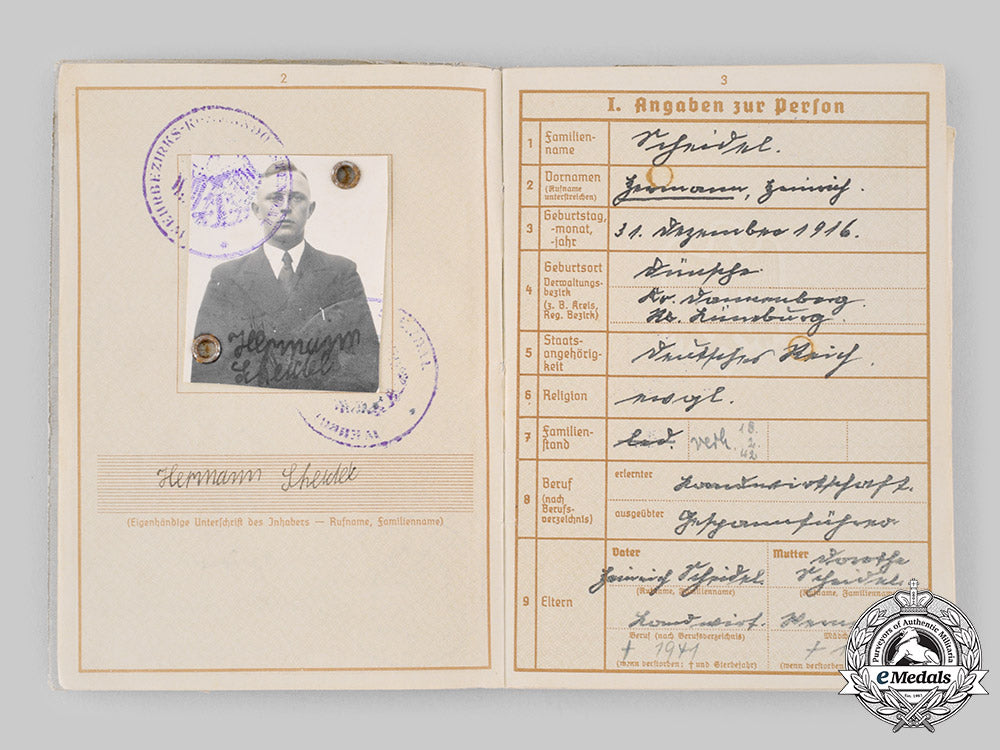 2
WEHRBEZIRKS-KOMMANDO
Hermann
Scheidel
Hermann Scheidel
(Eigenhändige Unterschrift des Inhabers — Rufname, Familienname)
3
I. Angaben zur Person
1 Familien-
name
Scheidel.
2 Vornamen
(Rufname
unterstreichen)
Hermann, Heinrich.
3 Geburtstag,
-monat,
-jahr
31. Dezember 1916.
4 Geburtsort
Verwaltungs-
bezirk
(z. B. Kreis,
Reg. Bezirk)
Kr. Dannenberg
Lüneburg.
5 Staats-
angehörig-
keit
Deutsches Reich.
6 Religion
evgl.
7 Familien-
stand
led. verh. 18.
2.
42
8 Beruf
(nach
Berufs-
verzeichnis)
erlernter
Landwirtschaft.
ausgeübter
Gespannführer
9 Eltern
Vater
Heinrich Scheidel.
(Rufname, Familienname)
Landwirt.
Beruf (nach Berufsverzeichnis)
† 1941
(wenn verstorben: † und Sterbejahr)
Mutter
Dorothe
Scheidel.
(Rufname, Familienname)
Mädch
†
(wenn verstorben
Purveyors of Authentic Militaria
eMedals